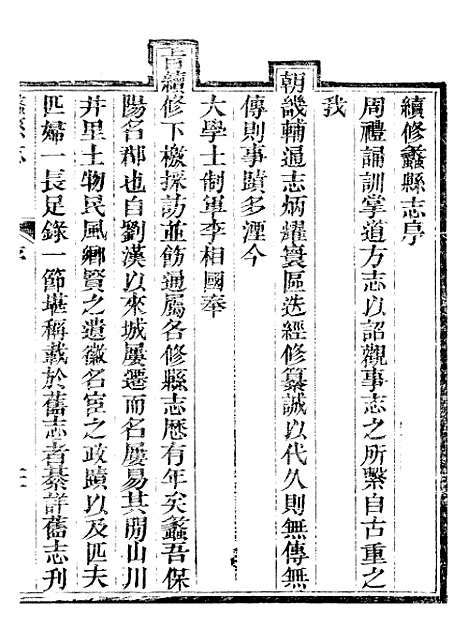 續修蠡縣志序
周禮誦訓掌道方志以詔觀事志之所繫自古重之
我
朝畿輔通志炳耀寰區迭經修纂誠以代久則無傳無
傳則事蹟多湮今
大學士制軍李相國奉
旨續修下檄採訪並飭通屬各修縣志歷有年矣蠡吾保
陽名郡也自劉漢以來城屢遷而名屢易其間山川
井里土物民風鄉賢之遺徽名宦之政蹟以及匹夫
匹婦一長足錄一節堪稱載於舊志者綦詳舊志刊